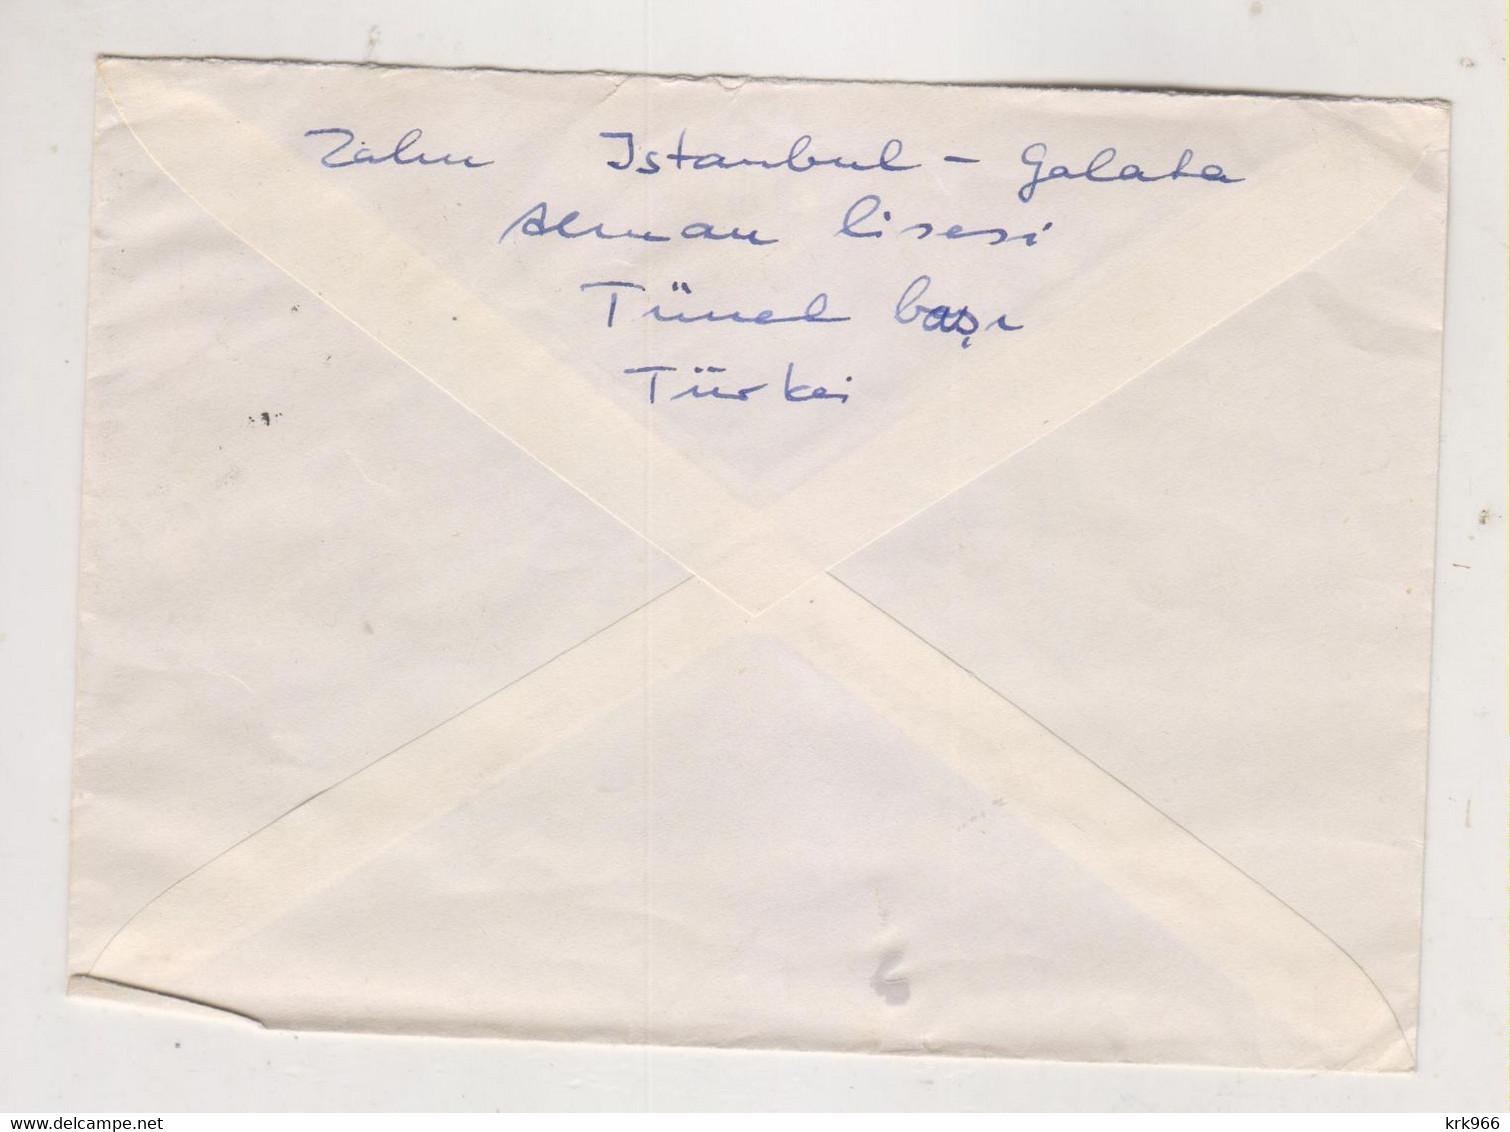 Zahn Istanbul - Galata
Alman Lisesi
Tünel başı
Türkei
delcampe.net
krk966